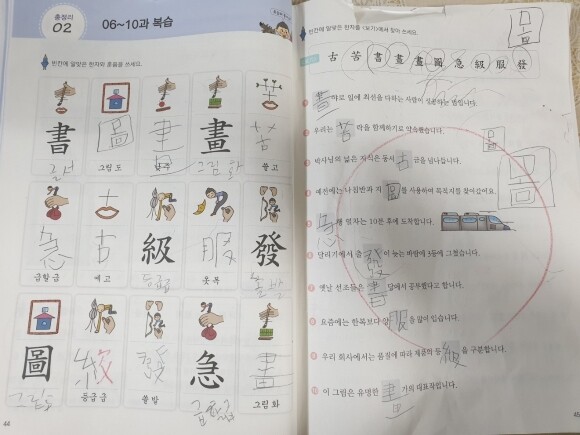 총정리
02
06~10과 복습
빈칸에 알맞은 한자와 훈음을 쓰세요.
書 圖 晝 畫 苦
그림 도 그림 화 쓸 고
急 古 級 服 發
급할 급 예 고 등급 옷 복 쏠 발
圖 級 發 急 畫
그림도 등급 급 쏠 발 급할급 그림 화
44
빈칸에 알맞은 한자를 〈보기〉에서 찾아 쓰세요.
古 苦 書 晝 畫 圖 急 級 服 發
圖
매사 일에 최선을 다하는 사람이 성공하는 법입니다.
우리는 苦락을 함께하기로 약속했습니다.
박사님의 넓은 지식은 동서古금을 넘나듭니다.
예전에는 나침반과 지圖를 사용하여 목적지를 찾아갔어요.
急행 열차는 10분 후에 도착합니다.
달리기에서 출發이 늦는 바람에 3등에 그쳤습니다.
옛날 선조들은 書당에서 공부했다고 합니다.
요즘에는 한복보다 양服을 많이 입습니다.
우리 회사에서는 품질에 따라 제품의 등級을 구분합니다.
이 그림은 유명한 畫가의 대표작입니다.
45